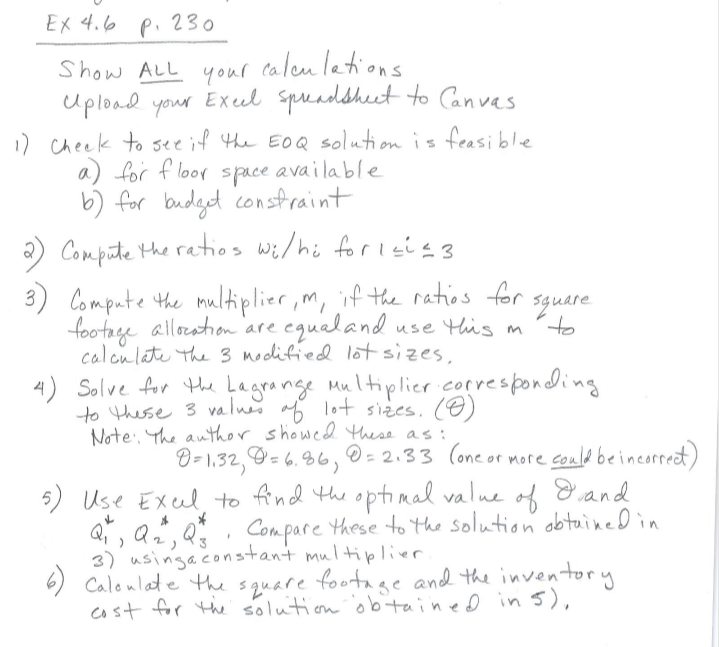 Ex 4.6 p. 230
Show ALL your calculations
Upload your Excel spreadsheet to Canvas
1) Check to see if the EOQ solution is feasible
a) for floor space available
b) for budget constraint
2) Compute the ratios wi/hi for 1≤i≤3
3) Compute the multiplier, m, if the ratios for square
footage allocation are equal and use this "m" to
calculate the 3 modified lot sizes.
4) Solve for the Lagrange Multiplier corresponding
to these 3 values of lot sizes. (θ)
Note: The author showed these as:
θ=1.32, θ=6.86, θ=2.33 (one or more could be incorrect)
5) Use Excel to find the optimal value of θ and
Q₁*, Q₂*, Q₃*. Compare these to the solution obtained in
3) using a constant multiplier.
6) Calculate the square footage and the inventory
cost for the solution obtained in 5).